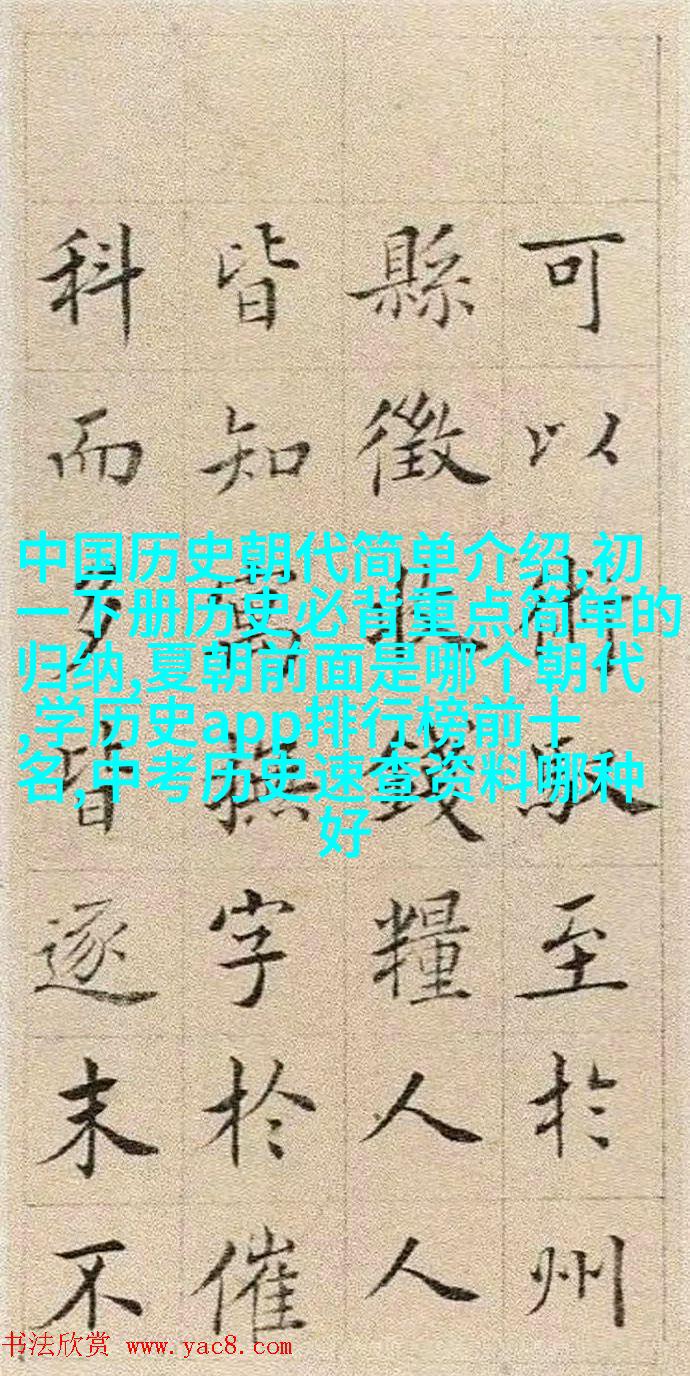 可以至於州
縣徵收錢糧人人
皆知撫字於催
科而皆逐末不
中国历史朝代简单介绍,初
一下册历史必背重点简单的
归纳,夏朝前面是哪个朝代
,学历史app排行榜前十
名,中考历史速查资料哪种
好
书法欣赏 www.yac8.com